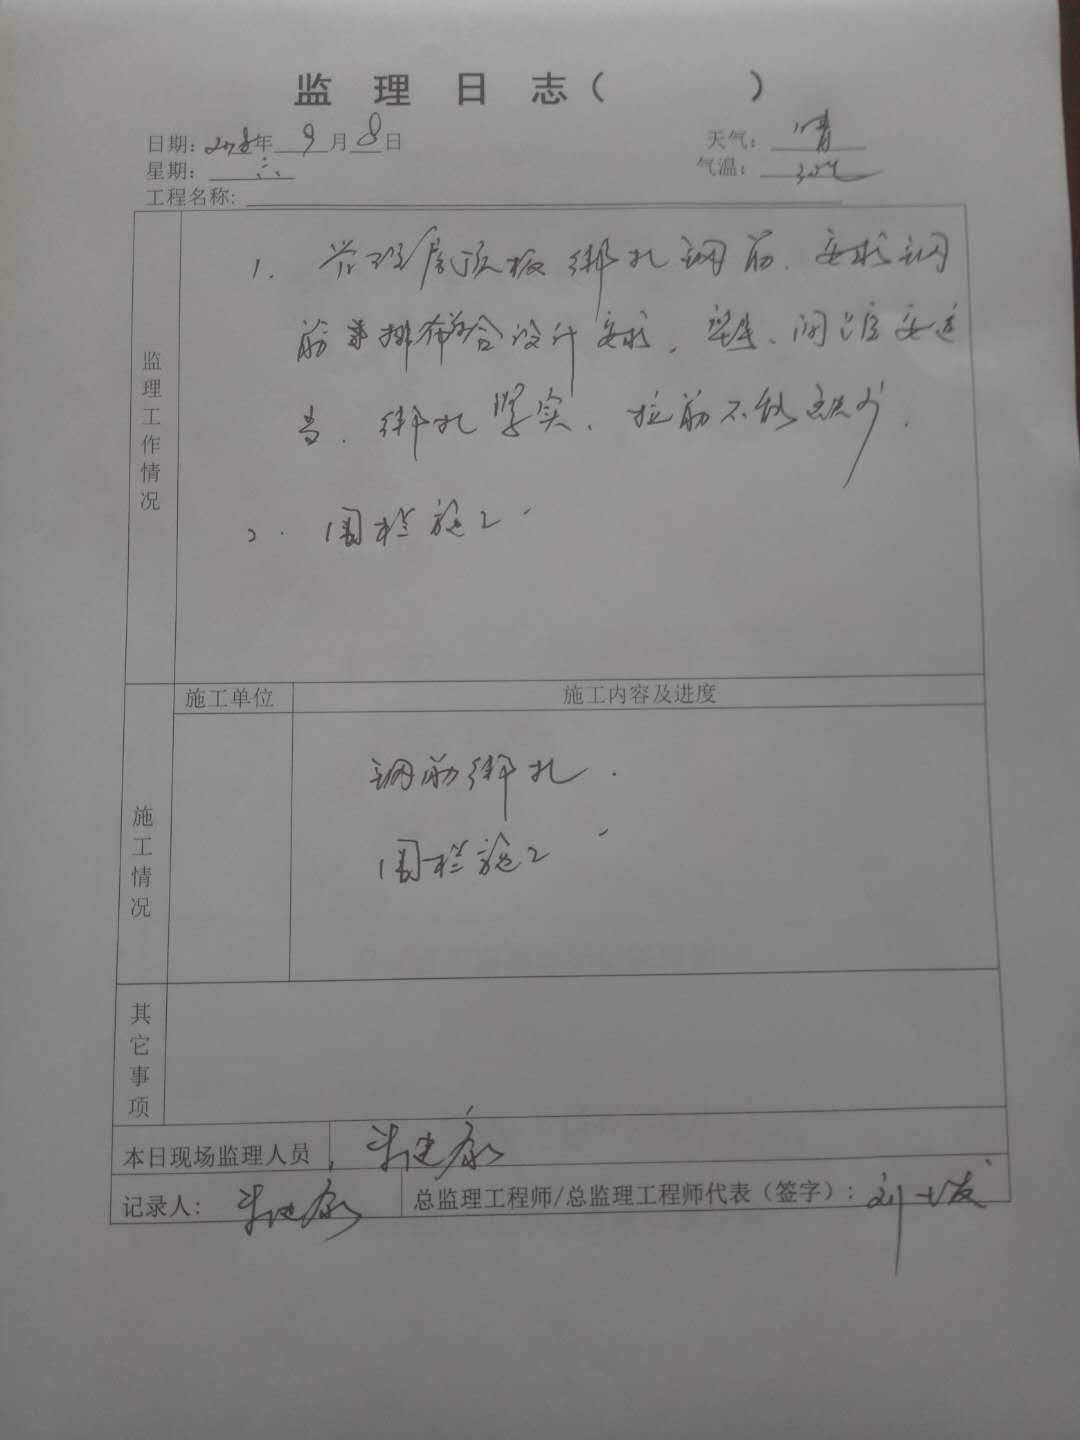 监 理 日 志（ ）
日期：2018年 9 月 8 日 天气： 晴
星期： 六 气温： 30℃
工程名称:
监理工作情况
1. 管理房顶板绑扎钢筋．要求钢
筋 排布符合设计要求．垫块、间距要适
当．绑扎 实、拉筋不能缺少．
2. 围栏施工．
施工单位 施工内容及进度
施工情况
钢筋绑扎．
围栏施工
其它事项
本日现场监理人员
记录人： 总监理工程师/总监理工程师代表（签字）：刘